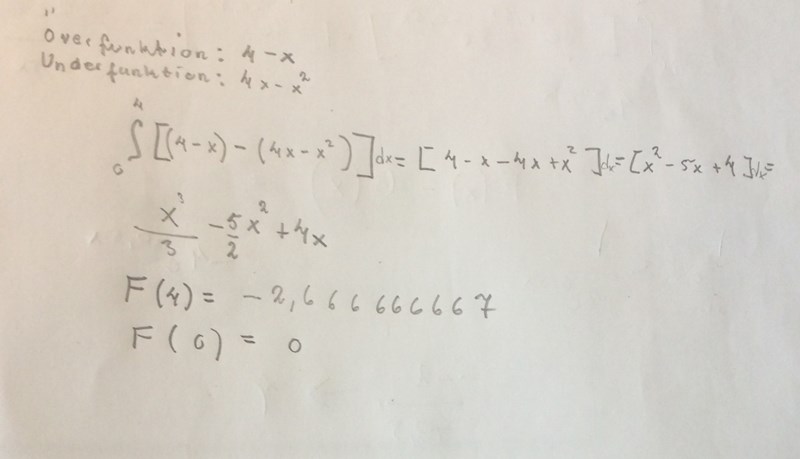 Överfunktion: 4 - x
Underfunktion: 4x - x²
∫₀⁴ [(4-x) - (4x - x²)] dx = [4 - x - 4x + x²] dx = [x² - 5x + 4] dx =
x³/3 - 5/2 x² + 4x
F(4) = -2,666666667
F(0) = 0